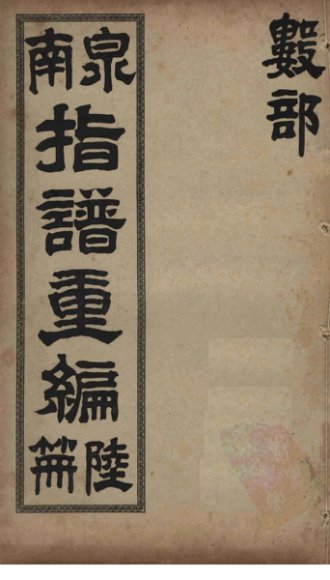 數部
泉南指譜重編陸笧